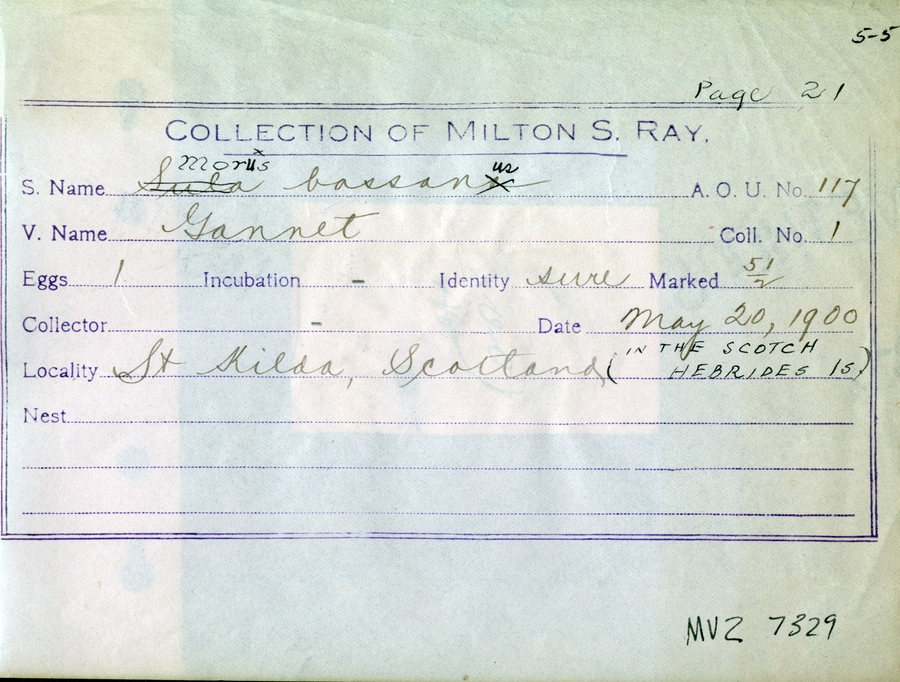 5-5
Page 21
COLLECTION OF MILTON S. RAY.
Morus us
S. Name Sula bassana A. O. U. No. 117
V. Name Gannet Coll. No. 1
Eggs 1 Incubation - Identity sure Marked 51/2
Collector - Date May 20, 1900
IN THE SCOTCH
Locality St Kilda, Scotland, ( HEBRIDES IS)
Nest
MVZ 7329